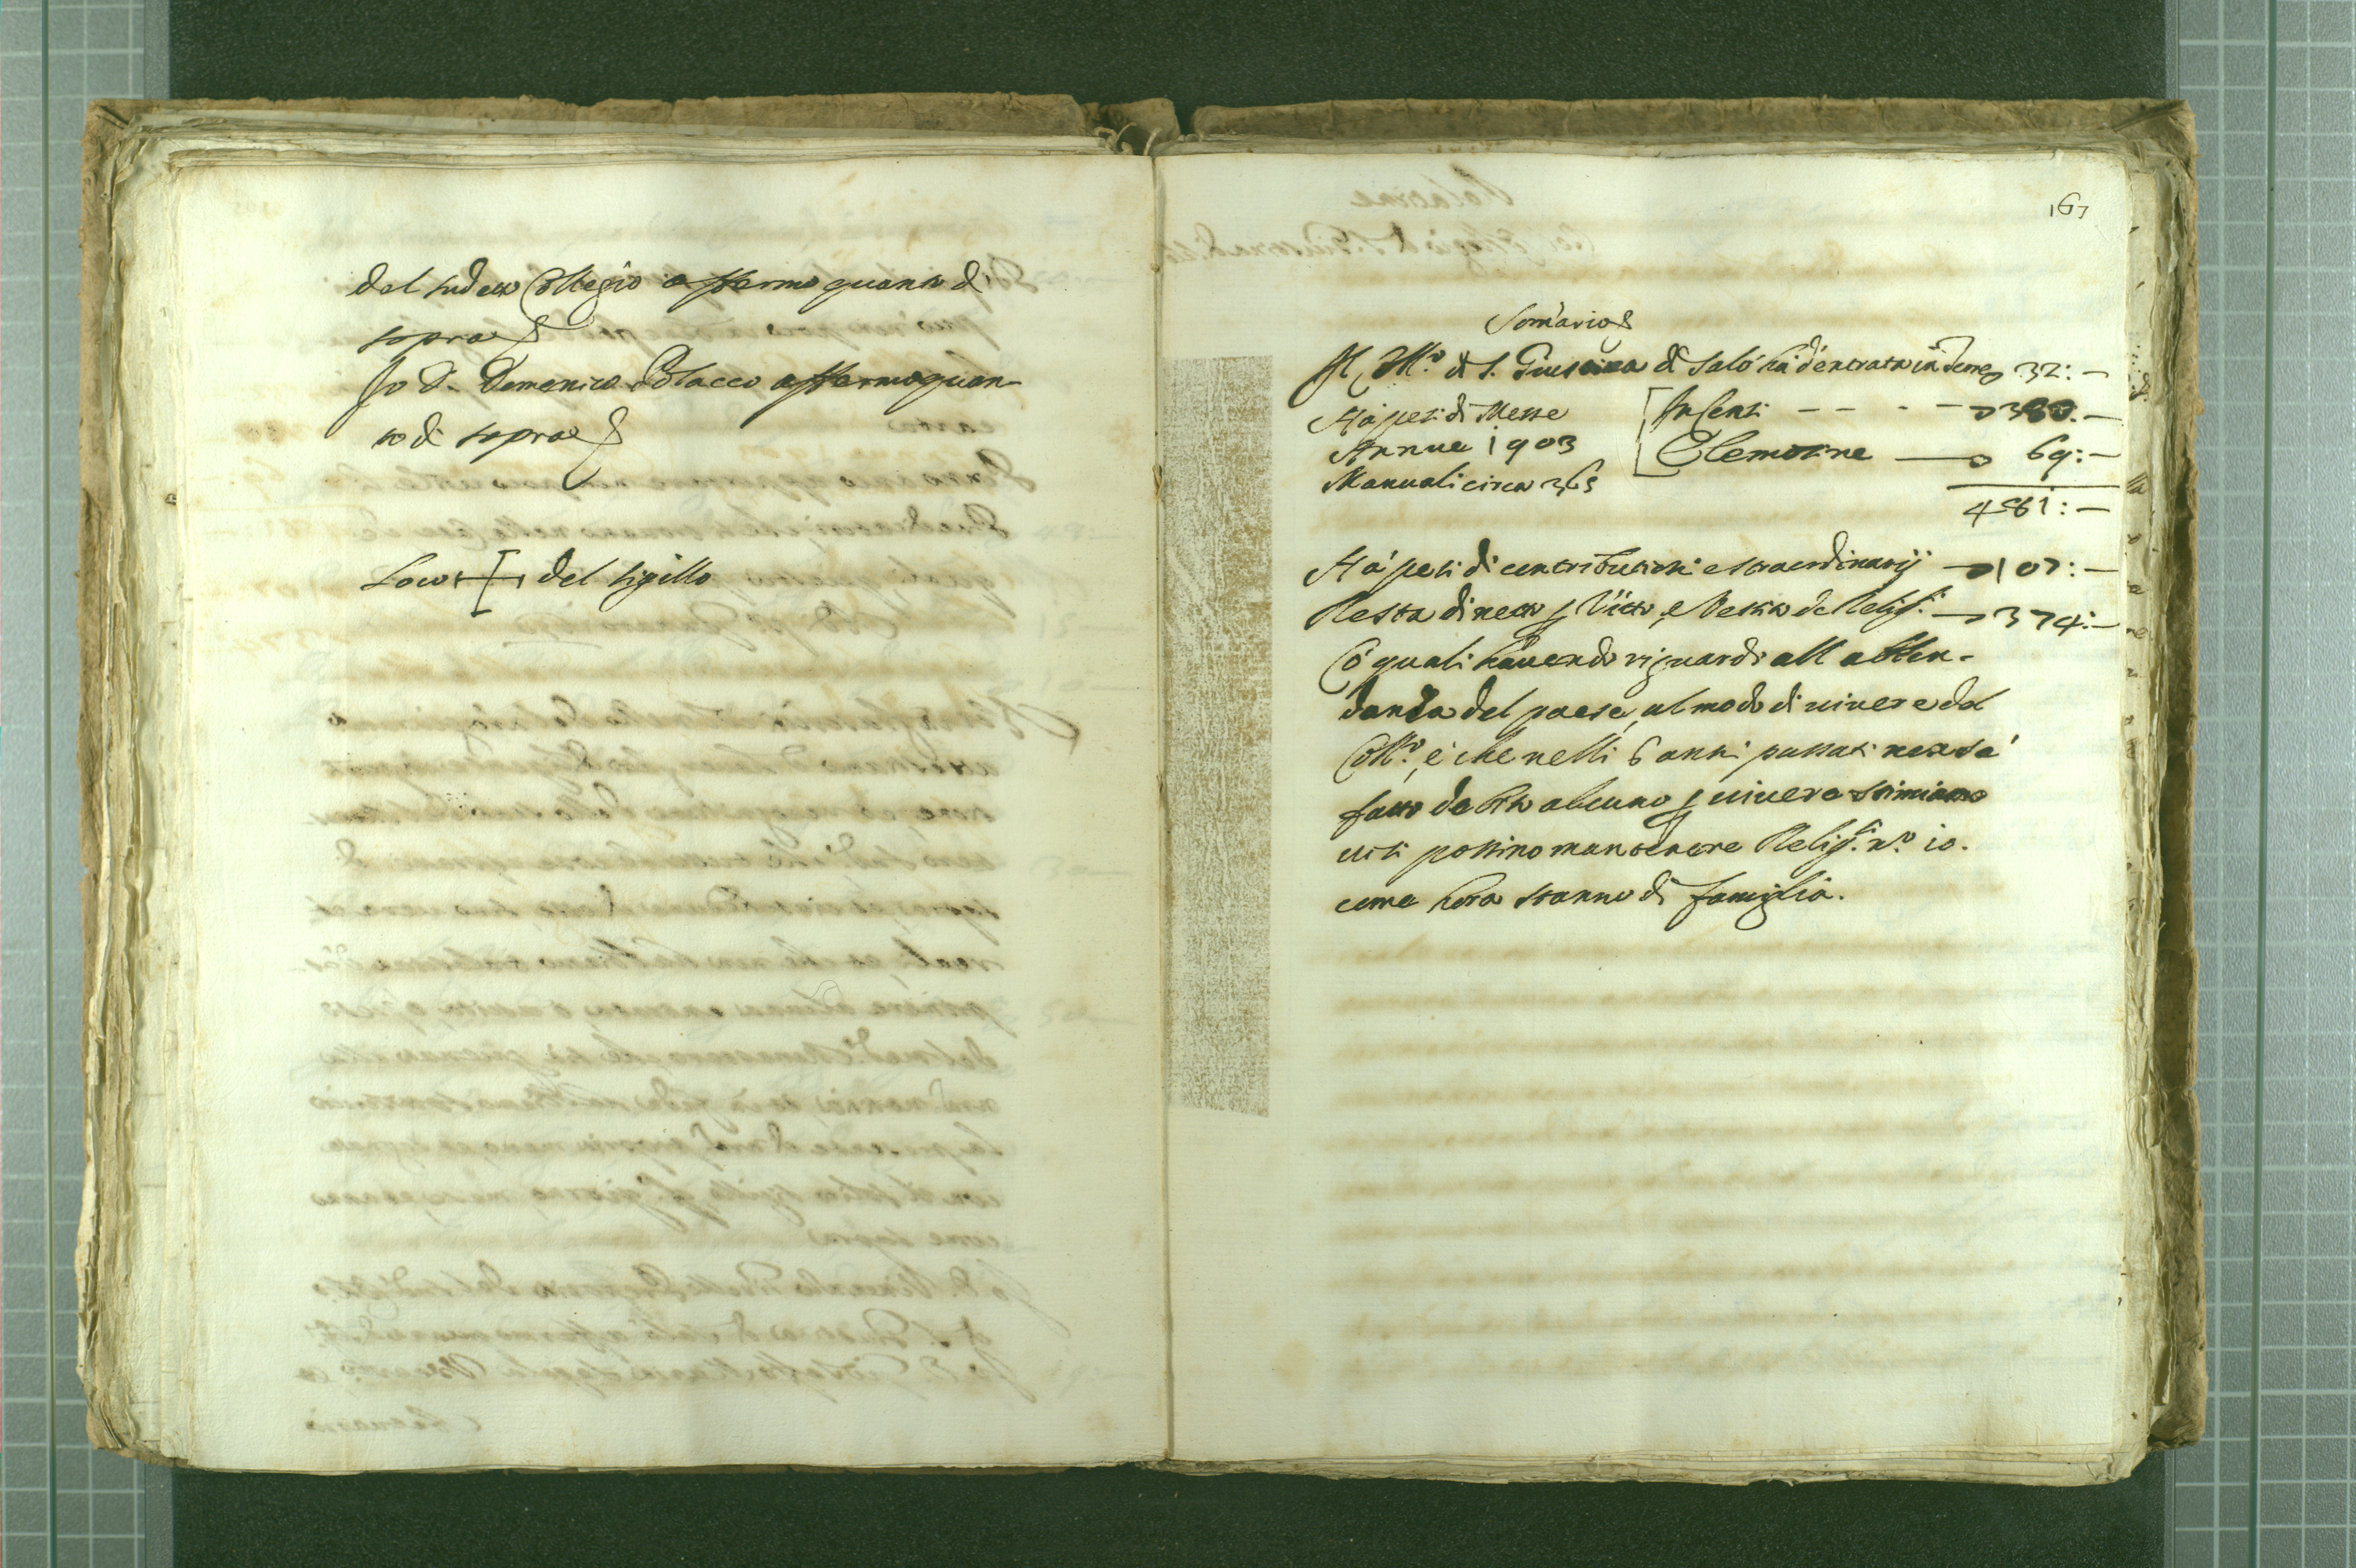 del sudetto Collegio affermo quanto di
sopra
Io D. Domenico Polacco affermo quan-
to di sopra
Loco + del sigillo
167
Som̄ario
Il Coll.º di S. Giustina di Salò hà d'entrata in Terre 32:—
Hà pesi di Messe
Annue 1903
Manuali circa 365
In Censi — — — — 380.—
Elemosine — 69:—
481:—
Hà pesi di contributioni estraordinarij — 107:—
Resta di netto p Vitto, e Vestito de Relig.si — 374:—
Cō quali hauendo riguardo all abbon-
danza del paese, al modo di uiuere del
Coll.º, e che nelli 6 anni passati non sà
fatto debito alcuno p uiuere stimiamo
ui si possino mantenere Relig.si n.º 10.
come hora stanno di famiglia.